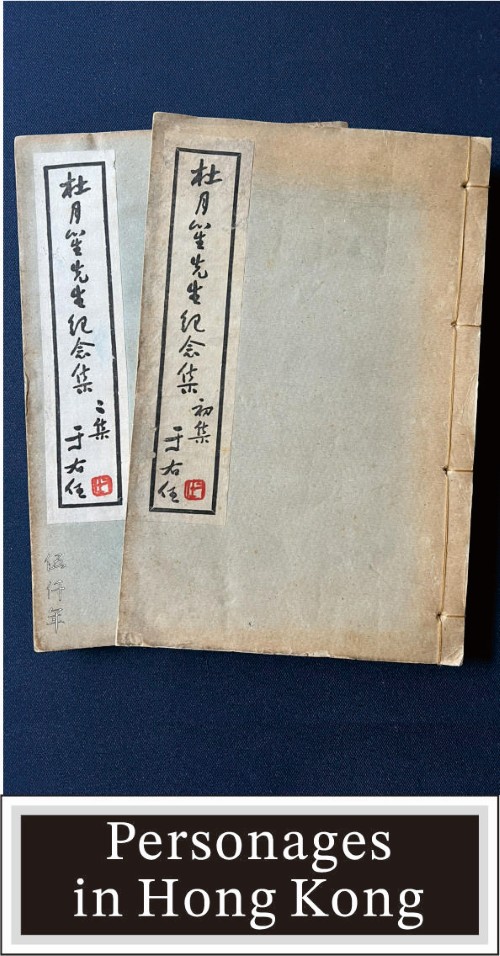 杜月笙先生紀念集
二集
于右任
杜月笙先生紀念集
初集
于右任
Personages
in Hong Kong